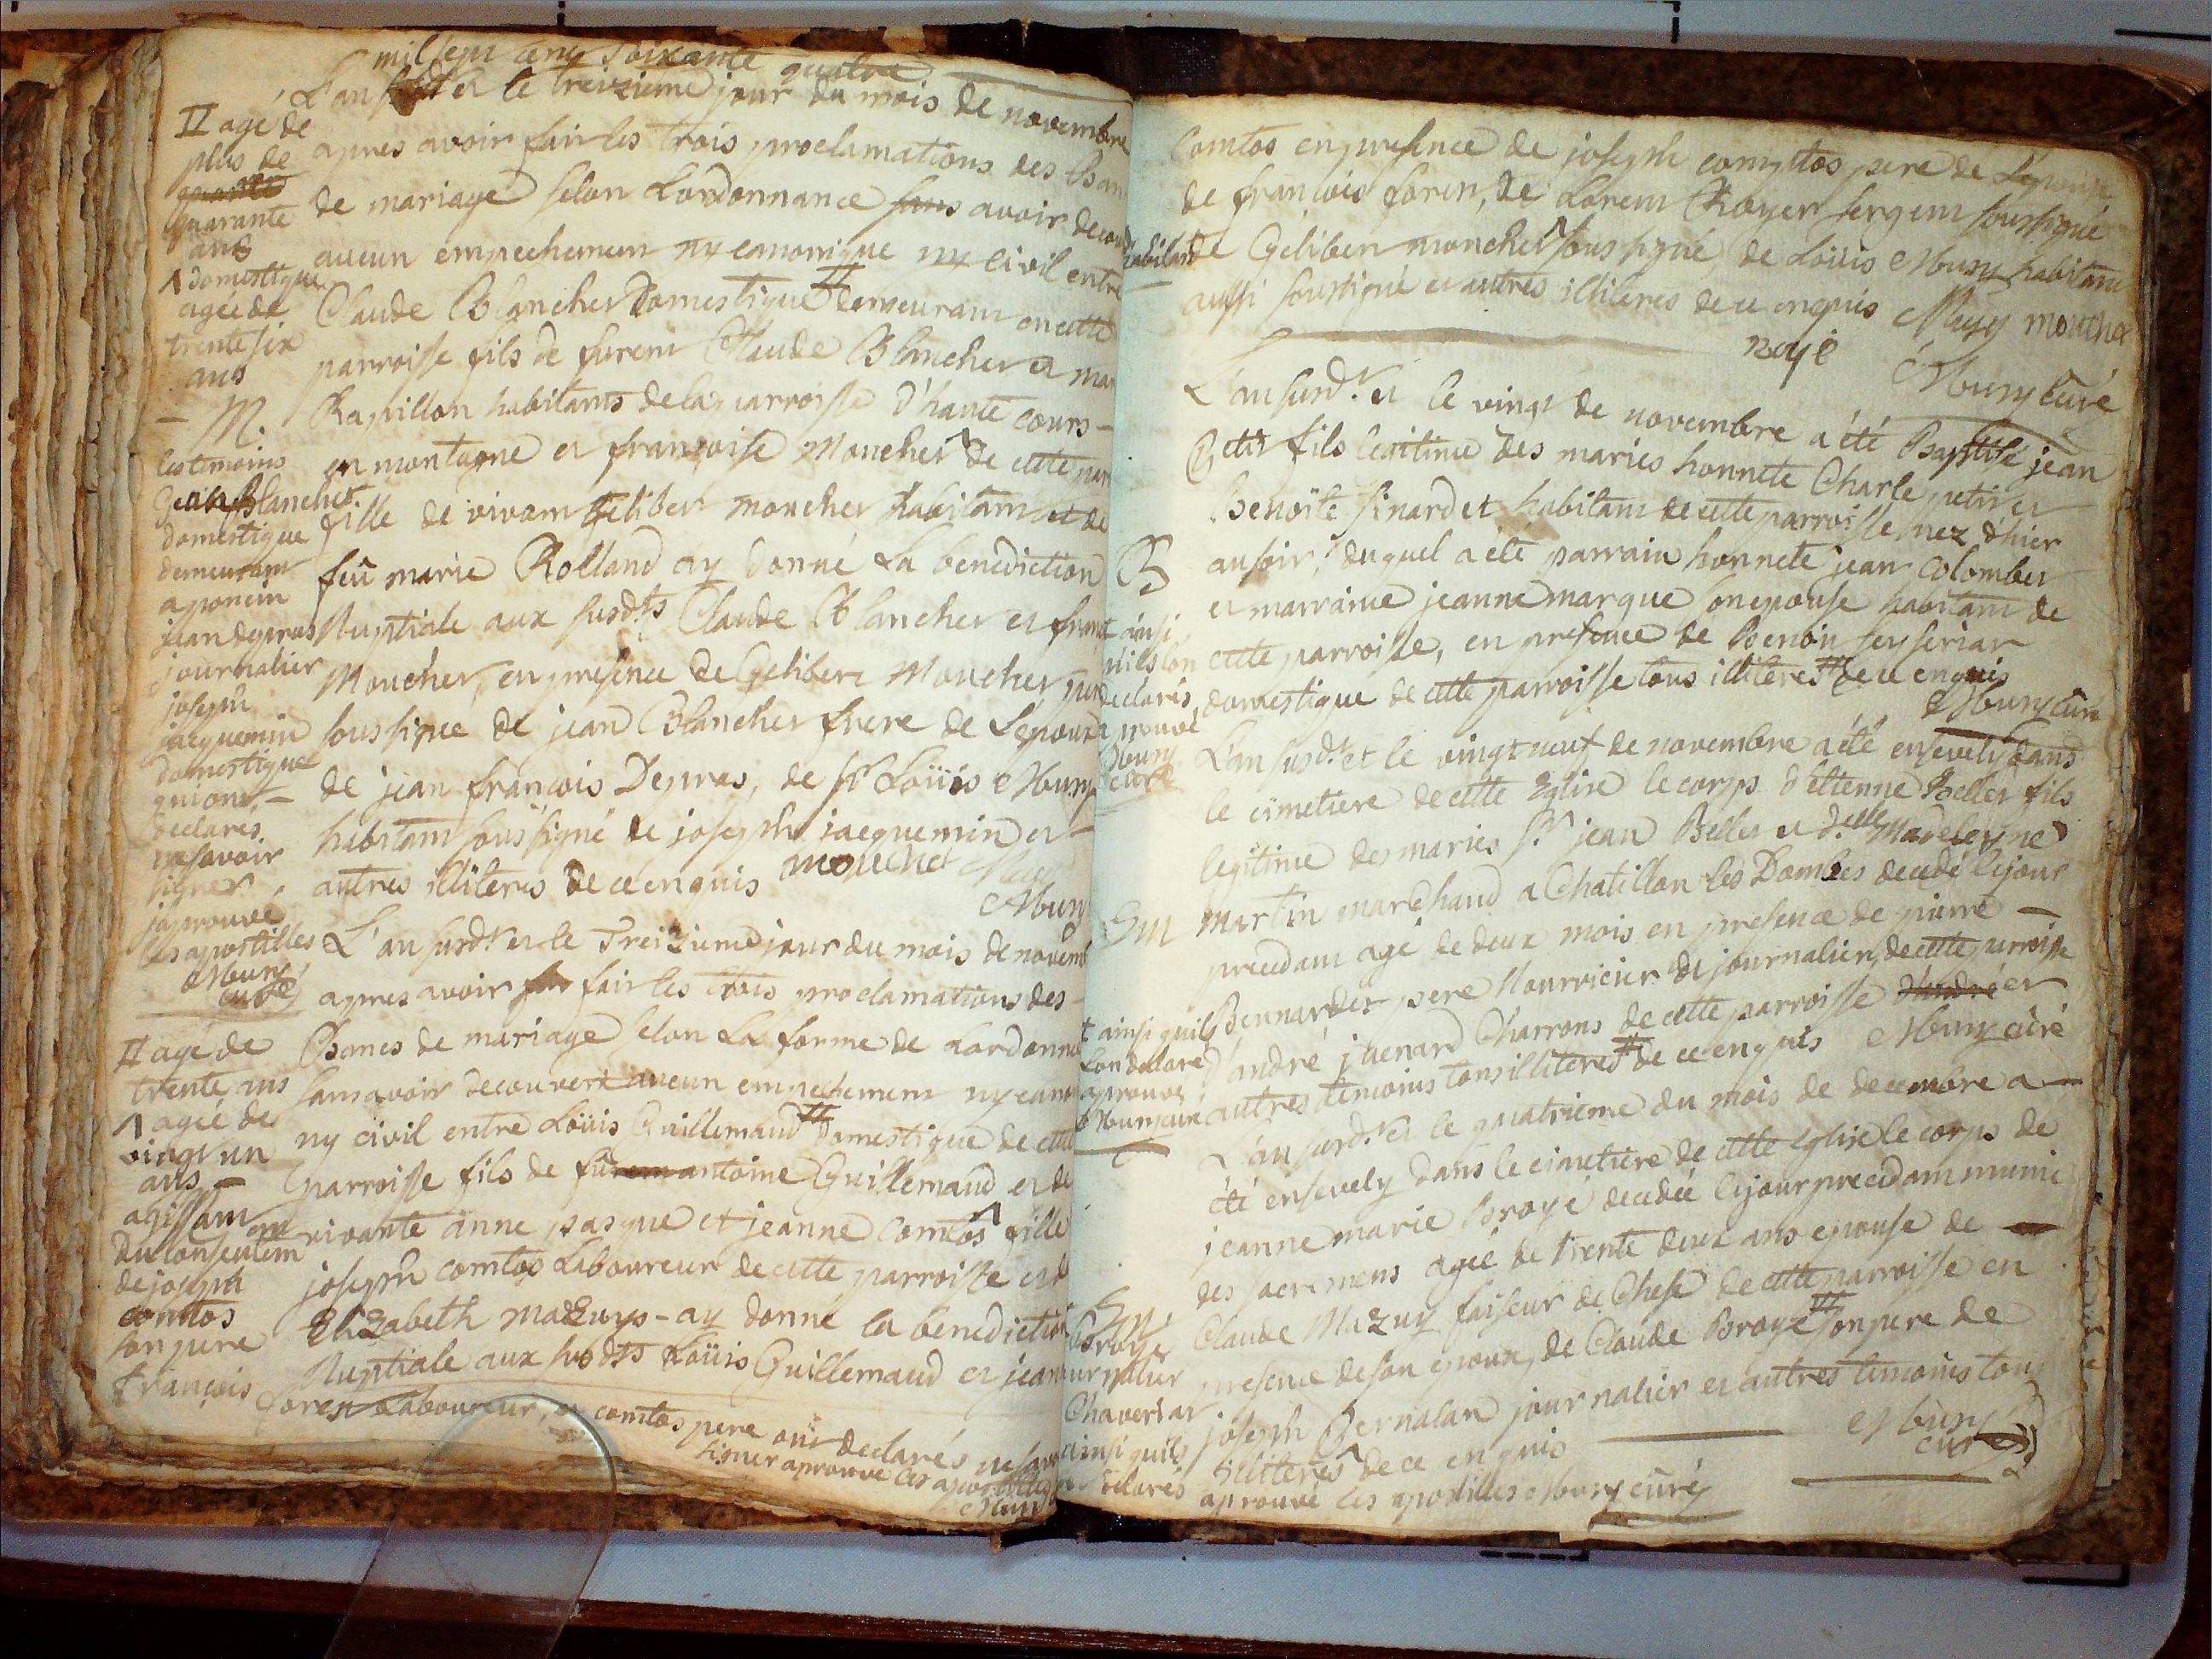 mil sept cent soixante quatre
L'an susdt et le treizieme jour du mois de novembre
apres avoir fait les trois proclamations des ban
de mariage selon Lordonnance sans avoir decou
aucun empechement ny canonique ny civil entre
Claude Blanchet Domestique demeurant en cette
parroisse fils de furent Claude Blanchet et mar
Rapillon habitants de la parroisse d'haute cours
en montagne et françoise Mouchet de cette par
fille de vivant Gelibert mouchet habitant et de
feû marie Rolland ay donné La benediction
Nuptiale aux susdts Claude Blanchet et franc
Mouchet, en presence de Gelibert Mouchet pere
soussigné de jean Blanchet frere de Lepoux
de jean françois Depras, de Sr Loüis Mbury
habitant soussigné de joseph jacquemin et
autres illiteres de ce enquis mouchet
Mbury
II agé de
plus de
quarante
ans
Λ domestique
agée de
trente six
ans
M.
les temoins
jean Blanchet
domestique
demeurant
a poncin
jean depras
journalier
joseph
jacquemin
domestique
qui ont
declarés
ne savoir
signer
japrouve
les apostilles
Mbury
curé
L'an susdt et le Treizieme jour du mois de novemb
apres avoir fait les trois proclamations des
Bancs de mariage selon La forme de Lordonn
sans avoir decouvert aucun empechement ny cano
ny civil entre Loüis Guillemaud Domestique de cette
parroisse fils de fû antoine Guillemaud et de
vivante anne pasque et jeanne Comtos fille
joseph comtos Laboureur de cette parroisse et d
Elizabeth Mazuys - ay donné la benediction
Nuptiale aux susdts Loüis Guillemaud et jean
II agé de
trente ans
Λ agée de
vingt un
ans
agissant
du consentem
de joseph
comtos
son pere
françois
foren Laboureur, et comtos pere ont declarés ne savo
signer aprouvé les apostilles
Mbury
Comtos en presence de joseph comptos pere de Lepouse
de francois foren, de Lorent Royer sergent soussigné
habitant de Gelibert mouchet soussigné, de Loüis Mbury habitant
aussi soussigné et autres illiteres de ce enquis Mbury mouchet
royé Mbury curé
L'an susdt et le vingt de novembre a été Baptisé jean
Petit fils legitime des maries honnete Charle petit et
Benoite sinardet habitant de cette parroisse nez d'hier
au soir, duquel a été parrain honnete jean Colombet
et marraine jeanne marque son epouse habitant de
cette parroisse, en presence de Benoit
domestique de cette parroisse tous illiteres de ce enquis
Mbury curé
B
ainsi
quils lon
declarés
aprouvé
Mbury
curé
L'an susdt et le vingt neuf de novembre a été ensevely dans
le cimetiere de cette Eglise le corps d'étienne Bellet fils
legitime des maries Sr jean Bellet et delle Madeleyne
Martin marchand a Chatillon les Dombes decedé le jour
precedant agé de deux mois en presence de pierre
Bennardet pere Nourricier journalier de cette parroisse
d'andré juenard Charrons de cette parroisse et
autres temoins tous illiteres de ce enquis Mbury curé
Sm
ainsi quils
Lon declaré
aprouvé
Mbury curé
L'an susdt et le quatrieme du mois de decembre a
été ensevely dans le cimetiere de cette Eglise le corps de
jeanne marie Broyé decedée le jour precedant munie
des sacremens agée de trente deux ans epouse de
Claude Mazuy faiseur de Chese de cette parroisse en
presence de son epoux, de Claude Broyé son pere de
joseph Bernalan journalier et autres temoins tous
illiteres de ce enquis
Mbury
curé
aprouvé les apostilles Mbury curé
Sme
Broyé
journalier
Chaveriat
ainsi quils
declarés